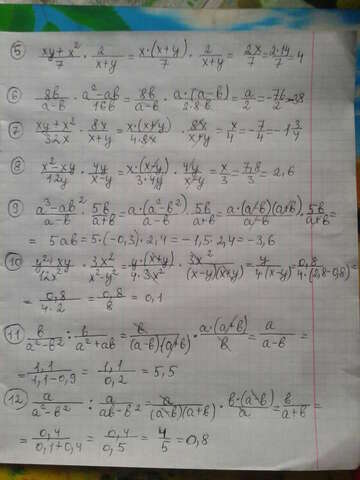 5 (xy + x²)/7 · 2/(x+y) = x·(x+y)/7 · 2/(x+y) = 2x/7 = 2·14/7 = 4
6 8b/(a-b) · (a²-ab)/16b = 8b/(a-b) · a·(a-b)/(2·8·b) = a/2 = -76/2 = -38
7 (xy + x²)/32x · 8x/(x+y) = x·(x+y)/(4·8x) · 8x/(x+y) = x/4 = -7/4 = -1 3/4
8 (x²-xy)/12y · 4y/(x-y) = x·(x-y)/(3·4y) · 4y/(x-y) = x/3 = 7,8/3 = 2,6
9 (a³-ab²)/(a-b) · 5b/(a+b) = a·(a²-b²)/(a-b) · 5b/(a+b) = a·(a-b)(a+b)/(a-b) · 5b/(a+b) =
= 5ab = 5·(-0,3)·2,4 = -1,5·2,4 = -3,6
10 (y²+xy)/12x² · 3x²/(x²-y²) = y·(x+y)/(4·3x²) · 3x²/((x-y)(x+y)) = y/(4(x-y)) = 0,8/(4·(2,8-0,8)) =
= 0,8/(4·2) = 0,8/8 = 0,1
11 b/(a²-b²) : b/(a²+ab) = b/((a-b)(a+b)) · a·(a+b)/b = a/(a-b) =
= 1,1/(1,1-0,9) = 1,1/0,2 = 5,5
12 a/(a²-b²) : a/(ab-b²) = a/((a-b)(a+b)) · b·(a-b)/a = b/(a+b) =
= 0,4/(0,1+0,4) = 0,4/0,5 = 4/5 = 0,8